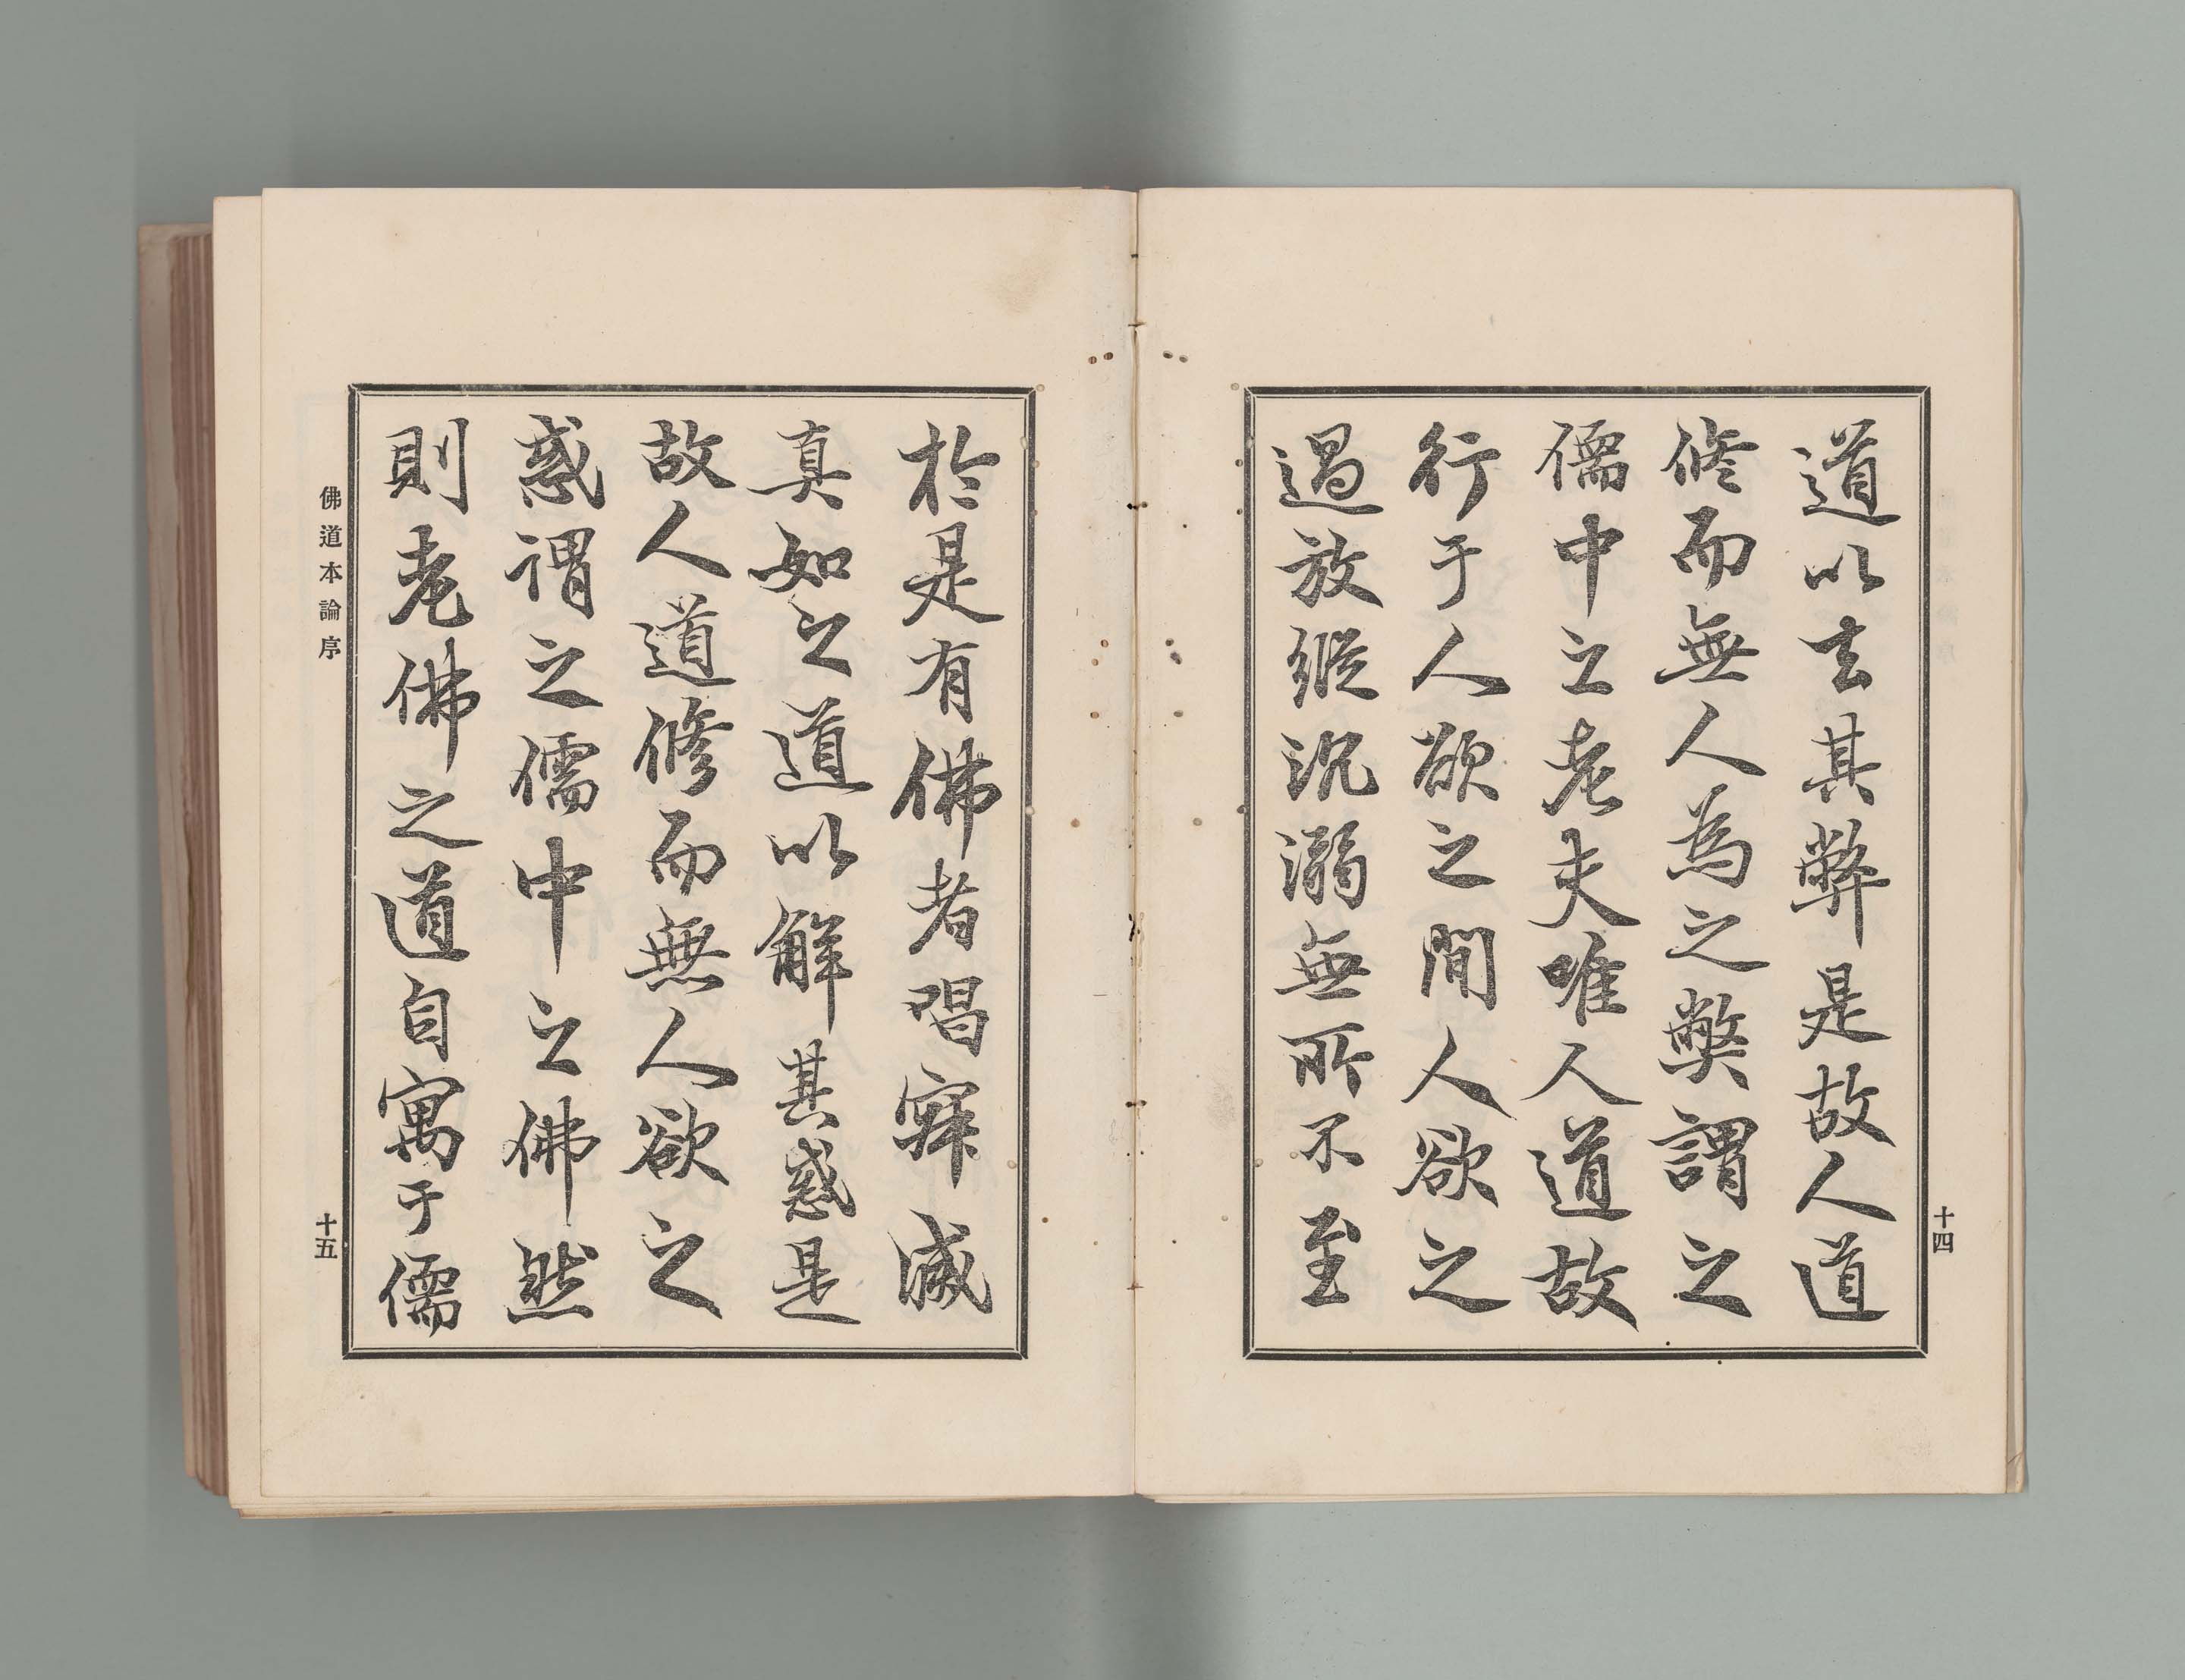 道以去其弊是故人道
修而無人為之弊謂之
儒中之老夫唯人道故
行于人欲之間人欲之
過放縱沉溺無所不至
十四
於是有佛者唱寂滅
真如之道以解其惑是
故人道修而無人欲之
惑謂之儒中之佛然
則老佛之道自寓于儒
佛道本論序
十五